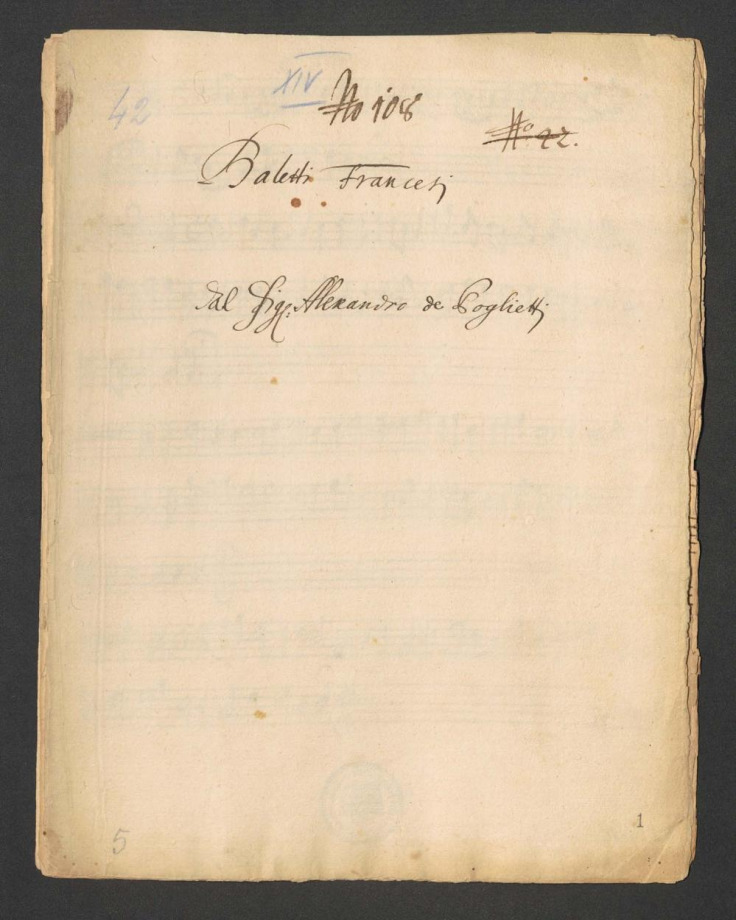 XIV
42
No 108
No. 22.
Baletti Francesi
dal Sigr: Alexandro de Poglietti
5
1